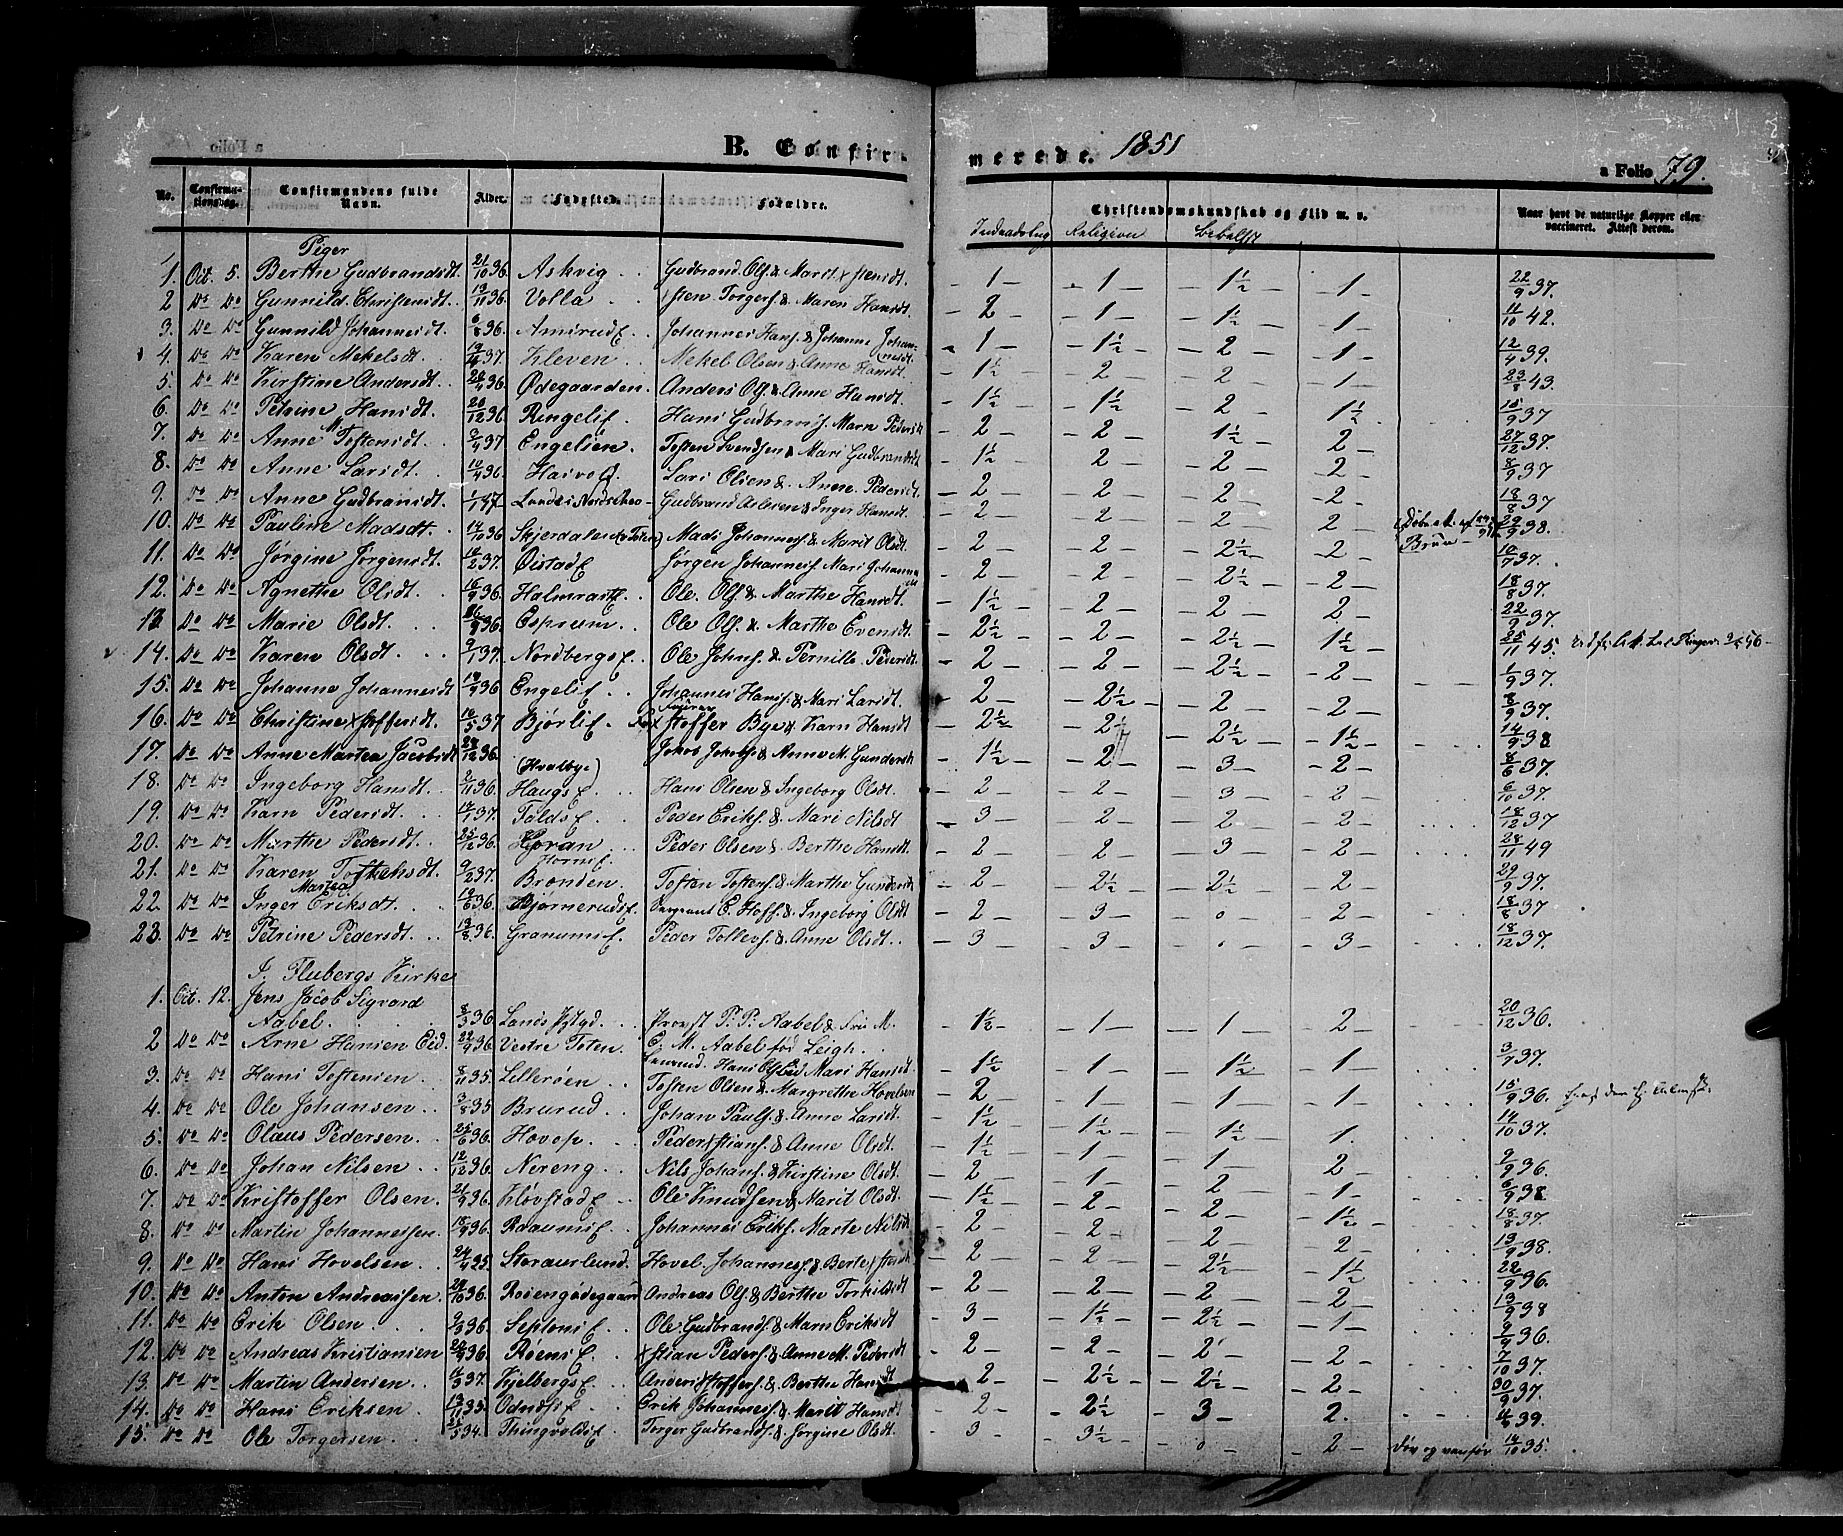 B. Confirmerede. 1851
a Folio 79.
No. Confirmationsdag. Confirmandens fulde Navn. Alder. Fødested. Forældre. Christendomskundskab og Flid m. v. Naar havt de naturlige Kopper eller vaccineret. Attest derom.
Religion
Piger
1. Oct. 5. Berthe Gudbrandsdt. 21/10 36. Askvig Gudbrand Ols. & Marit Xstensdt. 1 1 1½ 1 22/9 37.
2 Do Do Gunnild Christensdt. 19/11 36. Volla Sten Torgers. & Maren Hansdt. 2 1 1½ 1 11/10 42.
3. Do Do Gunnild Johannesdt. 6/8 36. AmsrudE. Johannes Hans. & Johanne Johannesdt. 1 1½ 2 1 12/4 39.
4. Do Do Karen Mekelsdt. Kleven. Mekel Olsen & Anne Hansdt. 1½ 2 2 1 23/8 43.
5. Do Do Kirstine Andersdt. 20/4 36. Ødegaarden. Anders Ols. & Anne Hansdt. 1½ 1½ 2 1½ 15/9 37
6. Do Do Petrine Hansdt. 20/12 36. RingeliE. Hans Gudbrands. Marn Pedersdt 2 2 1½ 2 27/12 37.
7. Do Do Anne M. Tostensdt. 3/4 37 Engelien. Tosten Svendsen & Mari Gudbrandsdt 1½ 2 2 2 8/9 37
8. Do Do Anne Larsdt. 10/4 36. Haivold. Lars Olsen & Anne Pedersdt. 2 2 2 2 18/8 37
9. Do Do Anne Gudbrandsdt. 1/1 37 Gudbrand Aslesen & Inger Hansdt. 2 2 2 2 22/9 38.
10. Do Do Pauline Madsdt. 14/10 36 Skjerdalen (Toten) Mads Johanness. & Marit Olsdt. 2 2 2½ 2 10/7 37.
11. Do Do Jørgine Jørgensdt. 12/2 37. ØistadE Jørgen Johanness. Mari Johannesdt 2 2 2½ 2 18/8 37.
12. Do Do Agnethe Olsdt. 16/9 36. HalmrastE. Ole Ols. & Marthe Hansdt. 1½ 2 2 2 22/9 37.
13. Do Do Marie Olsdt. 36. Espruem. Ole Ols. & Marthe Evensdt. 2½ 2 2½ 1½ 25/11 45.
14. Do Do Karen Olsdt. 9/1 37. NordbergsE. Ole Johns. & Pernille Pedersdt. 2 2 2½ 2 1/9 37.
15. Do Do Johanne Johannesdt 19/9 36 EngeliE. Johannes Hans. & Mari Larsdt. 2 2½ 2 2 8/9 37.
16. Do Do Christine Xstoffersdt. 16/5 37 BjørliE. Xstoffer Bye & Karn Hansdt. 2½ 2½ 2½ 1½ 14/9 38
17. Do Do Anne Martea Jacobsdt 28/12 36. Jakob Jakobs. & Anne M. Gundersdt 1½ 2 3 2 8/6 37.
18. Do Do Ingeborg Hansdt. 2/11 36. HaugsE. (Hvalbye) Hans Olsen & Ingeborg Olsdt. 2 2 3 2 6/10 37.
19. Do Do Karn Pedersdt. 14/1 37. FaldsE. Peder Eriks. & Mari Nilsdt 3 2 2 2 18/12 37
20. Do Do Marthe Pedersdt. 25/12 36. Peder Olsen & Berthe Hansdt. 2 2 3 2 28/11 49
21. Do Do Karen Tostensdt. 9/2 37. Brønden. Tosten Tostens. & Marthe Gundersdt 2 2½ 2½ 2 29/9 37.
22. Do Do Inger Martea Eriksdt. 19/6 36. BjørnerudsE. Sergeant E. Hoff. & Ingeborg Olsdt 2 3 0 2 18/8 37
23. Do Do Petrine Pedersdt. 13/8. 36. GranumsE. Peder Tollevs. & Anne Olsdt. 3 3 0 3 18/12 37.
I Flubergs Kirke
1. Oct. 12. Jens Jacob Sigvard Aabel. 8/3 36. Lands Pgstgd. Provst P. P. Aabel & Fru M. C. M. Aabel fød Leigh. 1½ 1 1 2 20/12 36.
2 Do Do Arne Hansen Eid. 22/9 36. Vestre Toten. Hans Ols Eid Mari Hansdt 1½ 1 1½ 1 3/7 37.
3. Do Do Hans Tostensen 8/11 35. Lillerøen. Tosten Olsen & Margrethe Hovelsen 2 1 1 1 15/9 36.
4. Do Do Ole Johansen 3/8 35 Brurud. Johan Pauls. & Anne Larsdt. 1½ 1½ 1½ 1. 14/10 37.
5. Do Do Olaus Pedersen 25/6 36. Hovop. Peder Xstians. & Anne Olsdt. 1½ 1 1 2 2/9 36.
6. Do Do Johan Nilsen 12/12 36. Nereng. Nils Johans. & Kirstine Olsdt. 2 1 2 1 6/9 38
7. Do Do Kristoffer Olsen. 21/9 36. KløvstadE Ole Knudsen & Marit Olsdt. 1½ 2 2 1½ 18/8 37.
8. Do Do Martin Johannessen. 18/9 36. RaaumsE. Johannes Eriks. Marte Nilsdt 2 2 2 2 13/9 38.
9. Do Do Hans Hovelsen. 24/9 35. Storaurlund. Hovel Johanness. & Berte Xstensdt 2 2 2½ 1½ 22/9 36.
10. Do Do Anton Andreassen. 36. Rosengødegaard Andreas Ols. & Berthe Torkildsdt 2 2 2 2 13/9 38
11. Do Do Erik Olsen 9/3 36. SeptonsE. Ole Gudbrands. & Marn Eriksdt 3 1½ 2½ 1 9/9 36.
12. Do Do Andreas Kristiansen 22/9 36. RøensE. Xstian Peders. & Anne M. Pedersdt 2 2 2 2 7/10 37.
13. Do Do Martin Andersen. 37. KjelbergsE. Anders Xstoffers. & Berthe Hansdt 2 2½ 2½ 2 30/9 37.
14. Do Do Hans Eriksen. 35. OdndsE. Erik Johanness. & Marit Hansdt 2 2½ 3 2. 39.
15. Do Do Ole Torgersen 34. ThingvoldsE Torger Gudbrands. & Jørgine Olsdt. 3 3½ 0 2 Døv og vanfør 14/10 35.